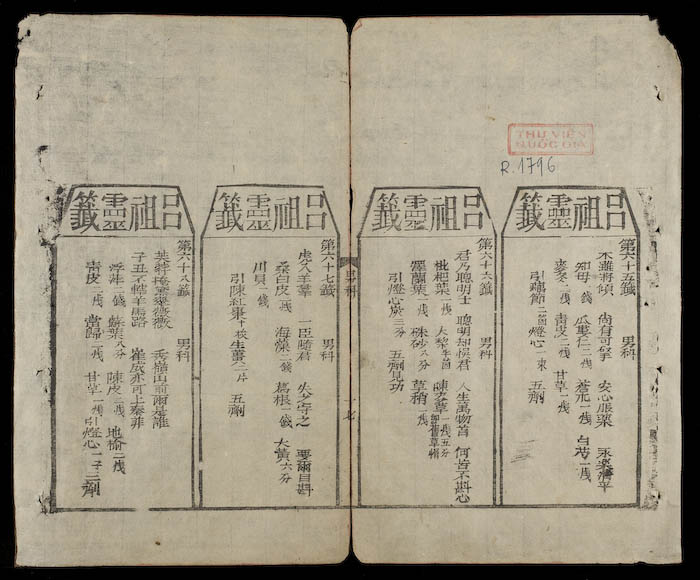 THƯ VIỆN
QUỐC GIA
R.1796
呂祖靈籤
第六十五籤 男科
木雖將傾 尚有可擎 安心服藥 永樂清平
知母一錢 瓜蔞仁二錢 蒼朮一錢 白芍一錢
麥冬二錢 青皮二錢 甘草一錢
引 燈心一束 五劑
呂祖靈籤
第六十六籤 男科
君乃聰明士 聰明却悞君 人生萬物首 何苦不斟心
枇杷葉一錢
澤蘭葉一錢 硃砂八分 草稍一錢
引燈心炭三分 五劑見功
男科
呂祖靈籤
第六十七籤 男科
虎入羊羣 一臣隨君 失必守之 要爾自斟
桑白皮二錢 海藻二錢 葛根一錢 大黃六分
川貝一錢
引陳紅棗十枚生薑三片 五劑
呂祖靈籤
第六十八籤 男科
子丑不轄羊馬路
浮萍一錢 蘇葉八分 陳皮二錢 地榆二錢
青皮一錢 當歸二錢 甘草一錢 引燈心一子 三劑